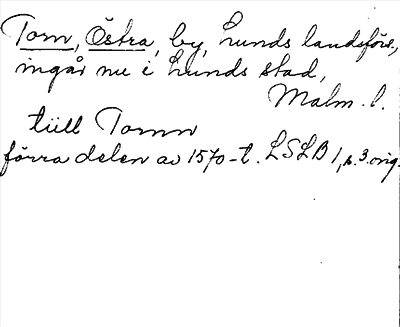 Torn, Östra, by, Lunds landsförs.,
ingår nu i Lunds stad,
Malm. l.
till Tornn
förra delen av 1570-t. LSLB 1, s. 3. orig.